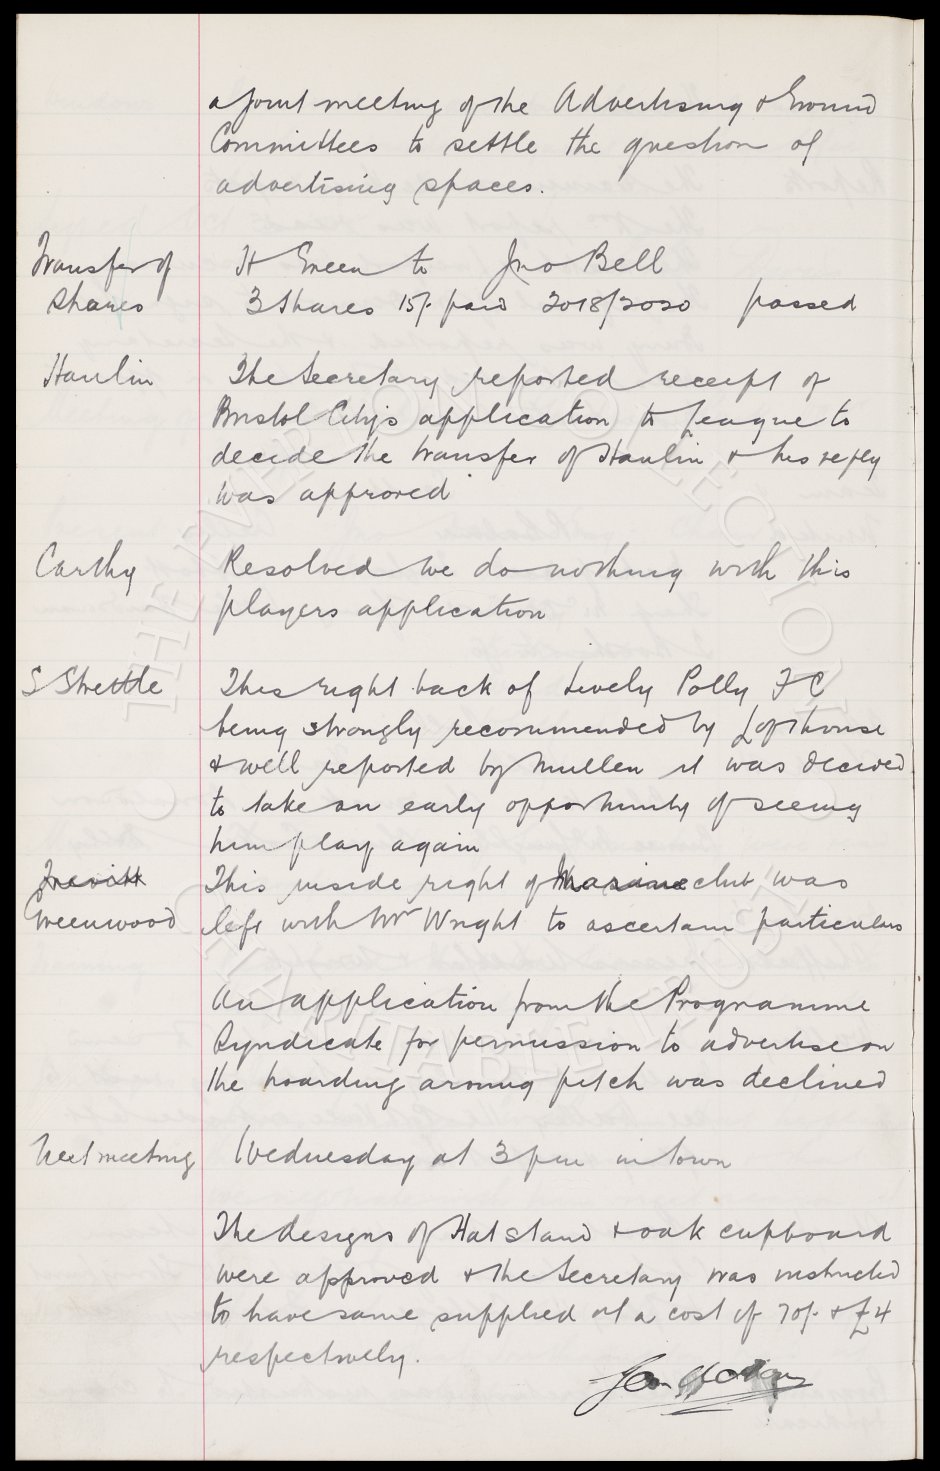 a joint meeting of the Advertising & Ground
Committees to settle the question of
advertising spaces.
Transfer of
Shares
H Green to Jno Bell
3 Shares 15/- paid 2018/2020 passed
Hanlin
The Secretary reported receipt of
Bristol City's application to League to
decide the transfer of Hanlin & his reply
was approved
Carthy
Resolved we do nothing with this
players application
S Strettle
This right back of Lively Polly F C
being strongly recommended by Lofthouse
& well reported by Mullen it was decided
to take an early opportunity of seeing
him play again
Trevitt
Greenwood
This inside right of Marine club was
left with Mr Wright to ascertain particulars
An application from the Programme
Syndicate for permission to advertise on
the hoarding around pitch was declined
Next meeting
Wednesday at 3 pm in town
The designs of Hat stand & oak cupboard
were approved & the Secretary was instructed
to have same supplied at a cost of 70/- & £4
respectively.
THE EVERTON COLLECTION